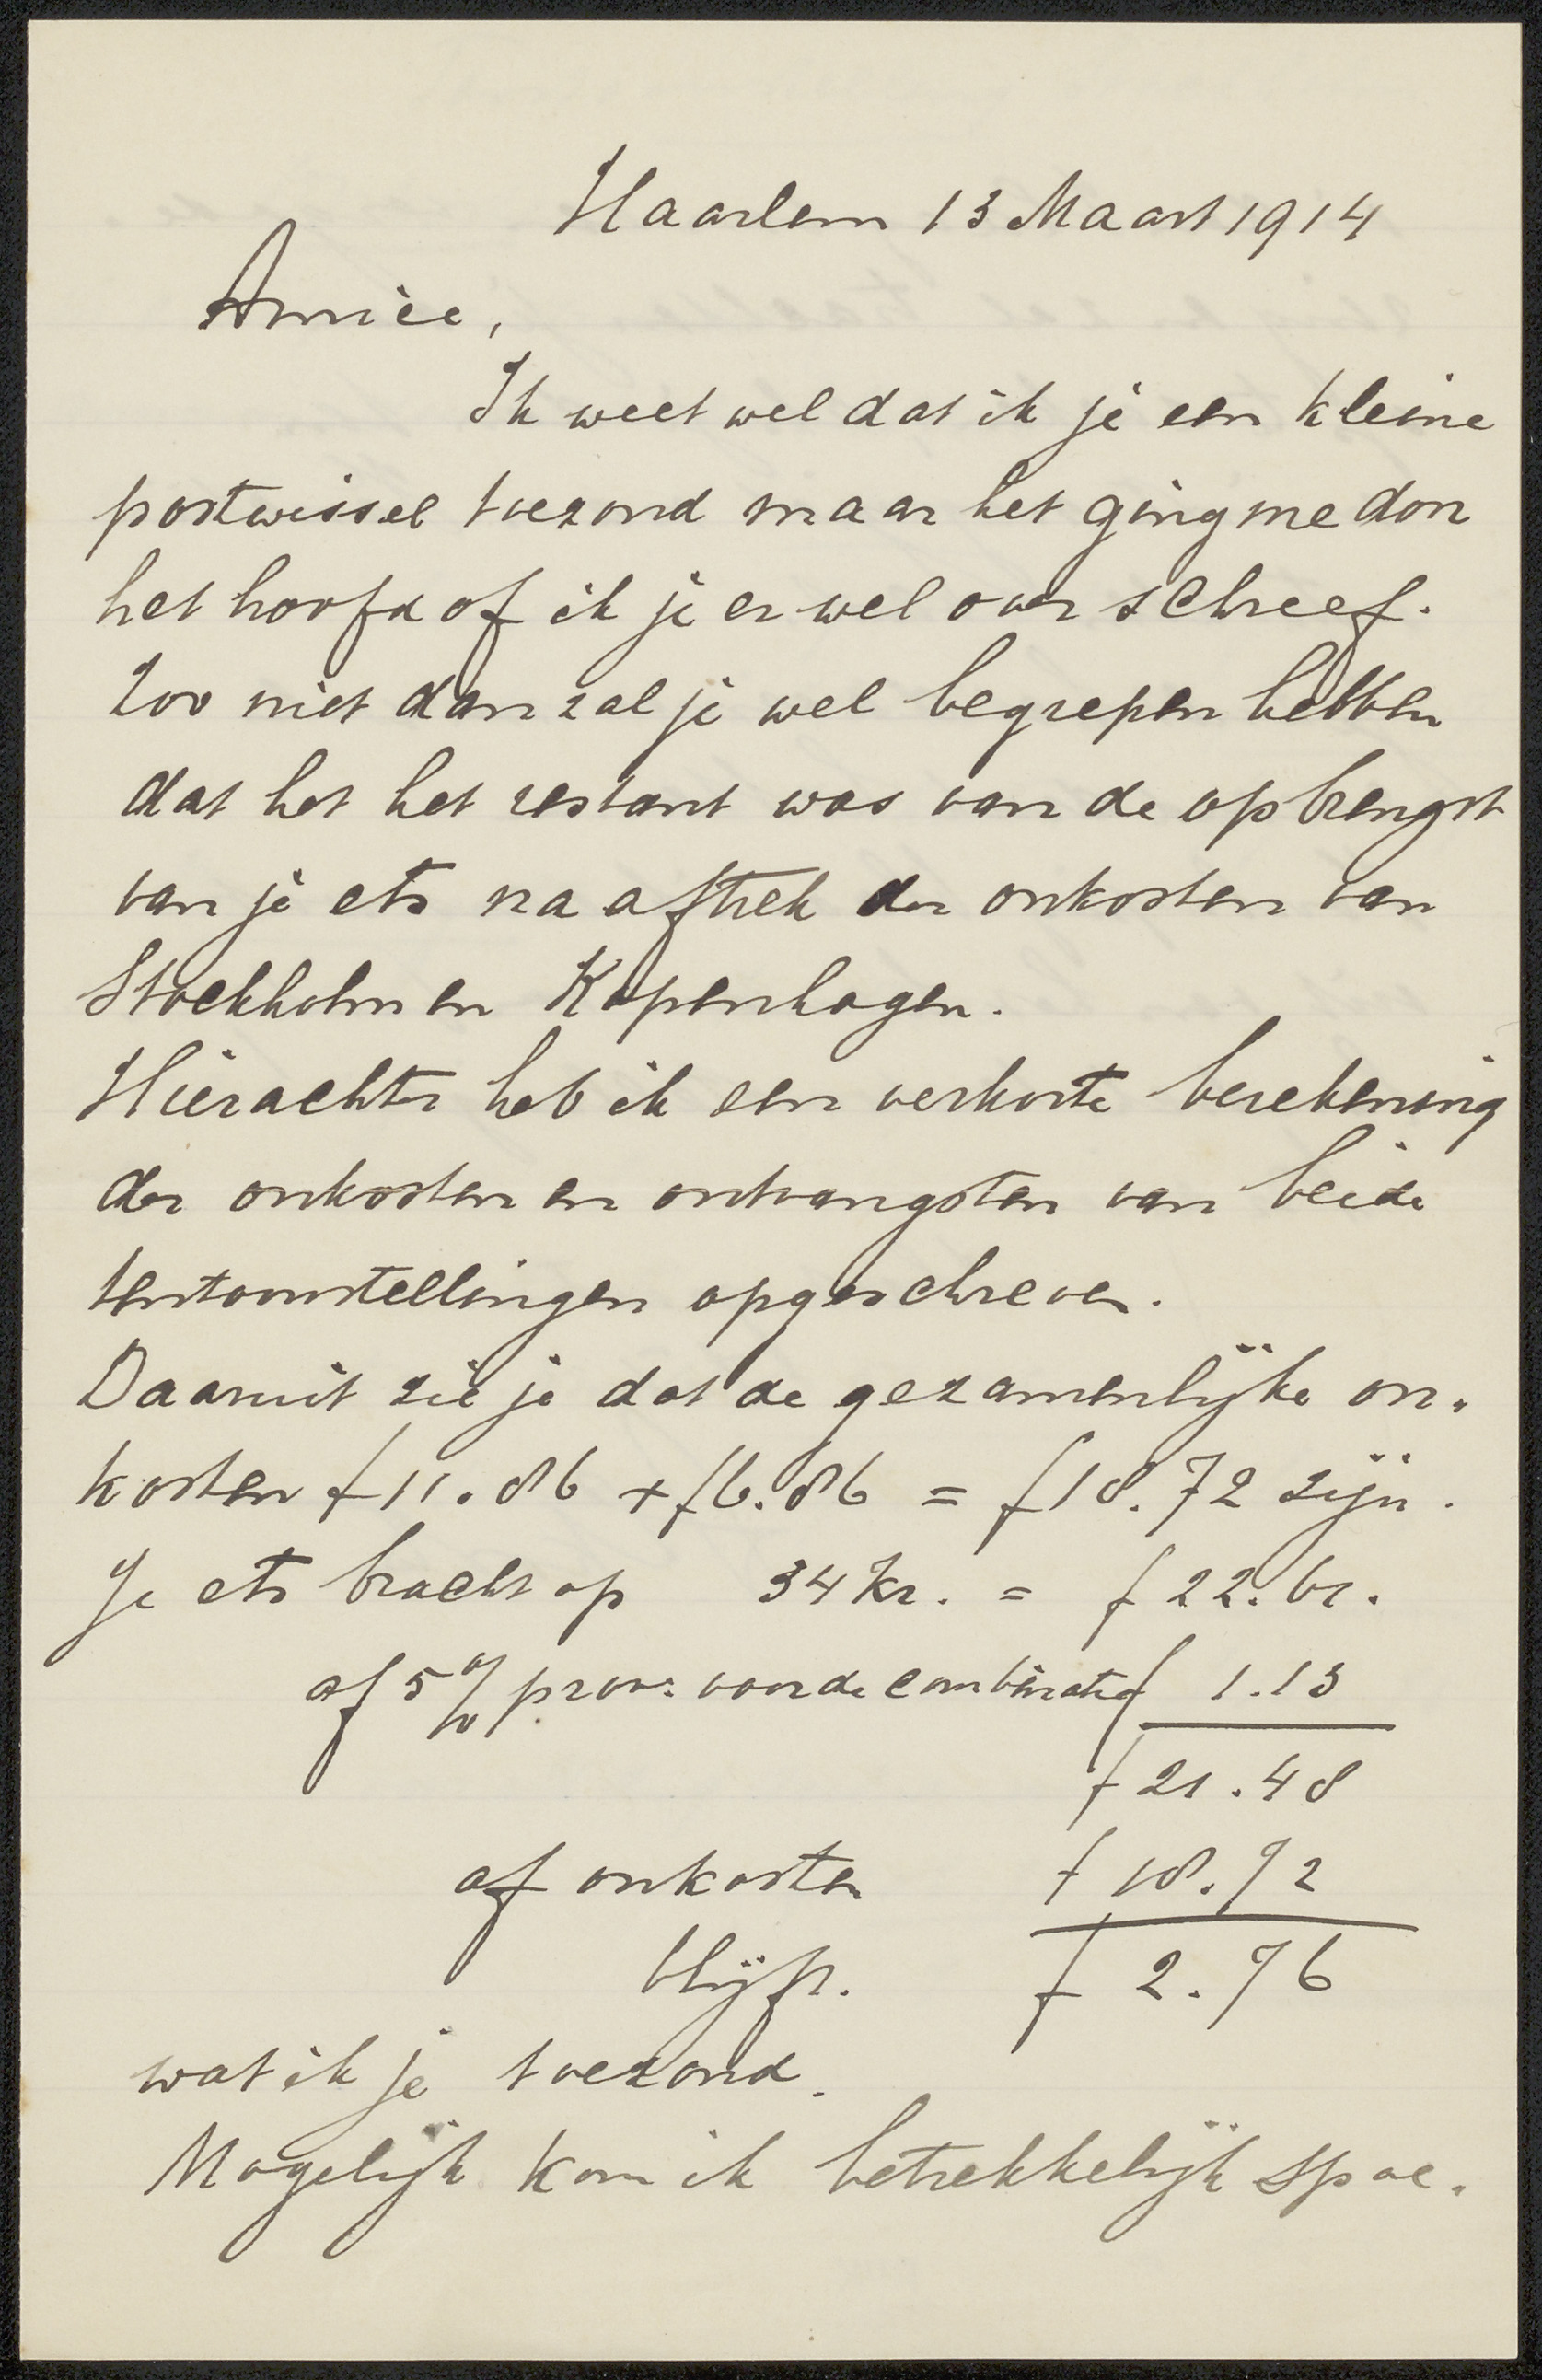 Haarlem 13 Maart 1914
Amice,
Ik weet wel dat ik je een kleine
postwissel toezond maar het ging me door
het hoofd of ik je er wel over schreef.
Zoo niet dan zal je wel begrepen hebben
dat het het restant was van de opbrengst
van je ets na aftrek der onkosten van
Stockholm en Kopenhagen.
Hierachter heb ik een verkorte berekening
der onkosten en ontvangsten van beide
tentoonstellingen opgeschreven.
Daaruit zie je dat de gezamenlijke on-
kosten f 11.86 + f 6.86 = f 18.72 zijn.
Je ets bracht op 34 Kr. = f 22.61.
af 5 % prov: voor de combinatie f 1.13
f 21.48
af onkosten f 18.72
blijft. f 2.76
wat ik je toezond.
Mogelijk kom ik betrekkelijk spoe-